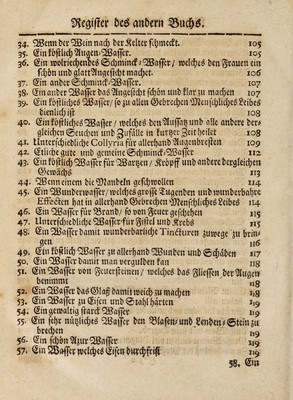 Register des andern Buchs.
34. Wenn der Wein nach der Kelter schmeckt. 105
35. Ein köstlich Augen-Wasser. 105
36. Ein wolriechendes Schminck-Wasser / welches den Frauen ein
schön und glatt Angesicht machet. 106
37. Ein ander Schminck-Wasser. 107
38. Ein ander Wasser das Angesicht schön und klar zu machen 107
39. Ein köstliches Wasser / so zu allen Gebrechen Menschliches Leibes
dienlich ist 108
40. Ein köstliches Wasser / welches den Aussatz und alle andere der-
gleichen Seuchen und Zufälle in kurtzer Zeit heilet 108
41. Unterschiedliche Collyria für allerhand Augenbresten 109
42. Etliche gute und gemeine Schminck-Wasser 112
43. Ein köstlich Wasser für Wartzen / Kröpff und andere dergleichen
Gewächs 113
44. Wenn einem die Mandeln geschwollen 114
45. Ein Wunderwasser / welches grosse Tugenden und wunderbahre
Effecten hat in allerhand Gebrechen Menschliches Leibes 114
46. Ein Wasser für Brand / so von Feuer geschehen 115
47. Unterschiedliche Wasser für Fistel und Krebs 115
48. Ein Wasser damit wunderbarliche Tincturen zuwege zu brin-
gen 116
49. Ein köstlich Wasser zu allerhand Wunden und Schäden 117
50. Ein Wasser damit man vergulden kan 118
51. Ein Wasser von Feuersteinen / welches das Fliessen der Augen
benimmt 118
52. Ein Wasser das Glaß damit weich zu machen 118
53. Ein Wasser zu Eisen und Stahl härten 119
54. Ein gewaltig starck Wasser 119
55. Ein sehr nützliches Wasser den Blasen- und Lenden-Stein zu
brechen 119
56. Ein schön Azur Wasser 119
57. Ein Wasser welches Eisen durchfrist 119
58. Ein